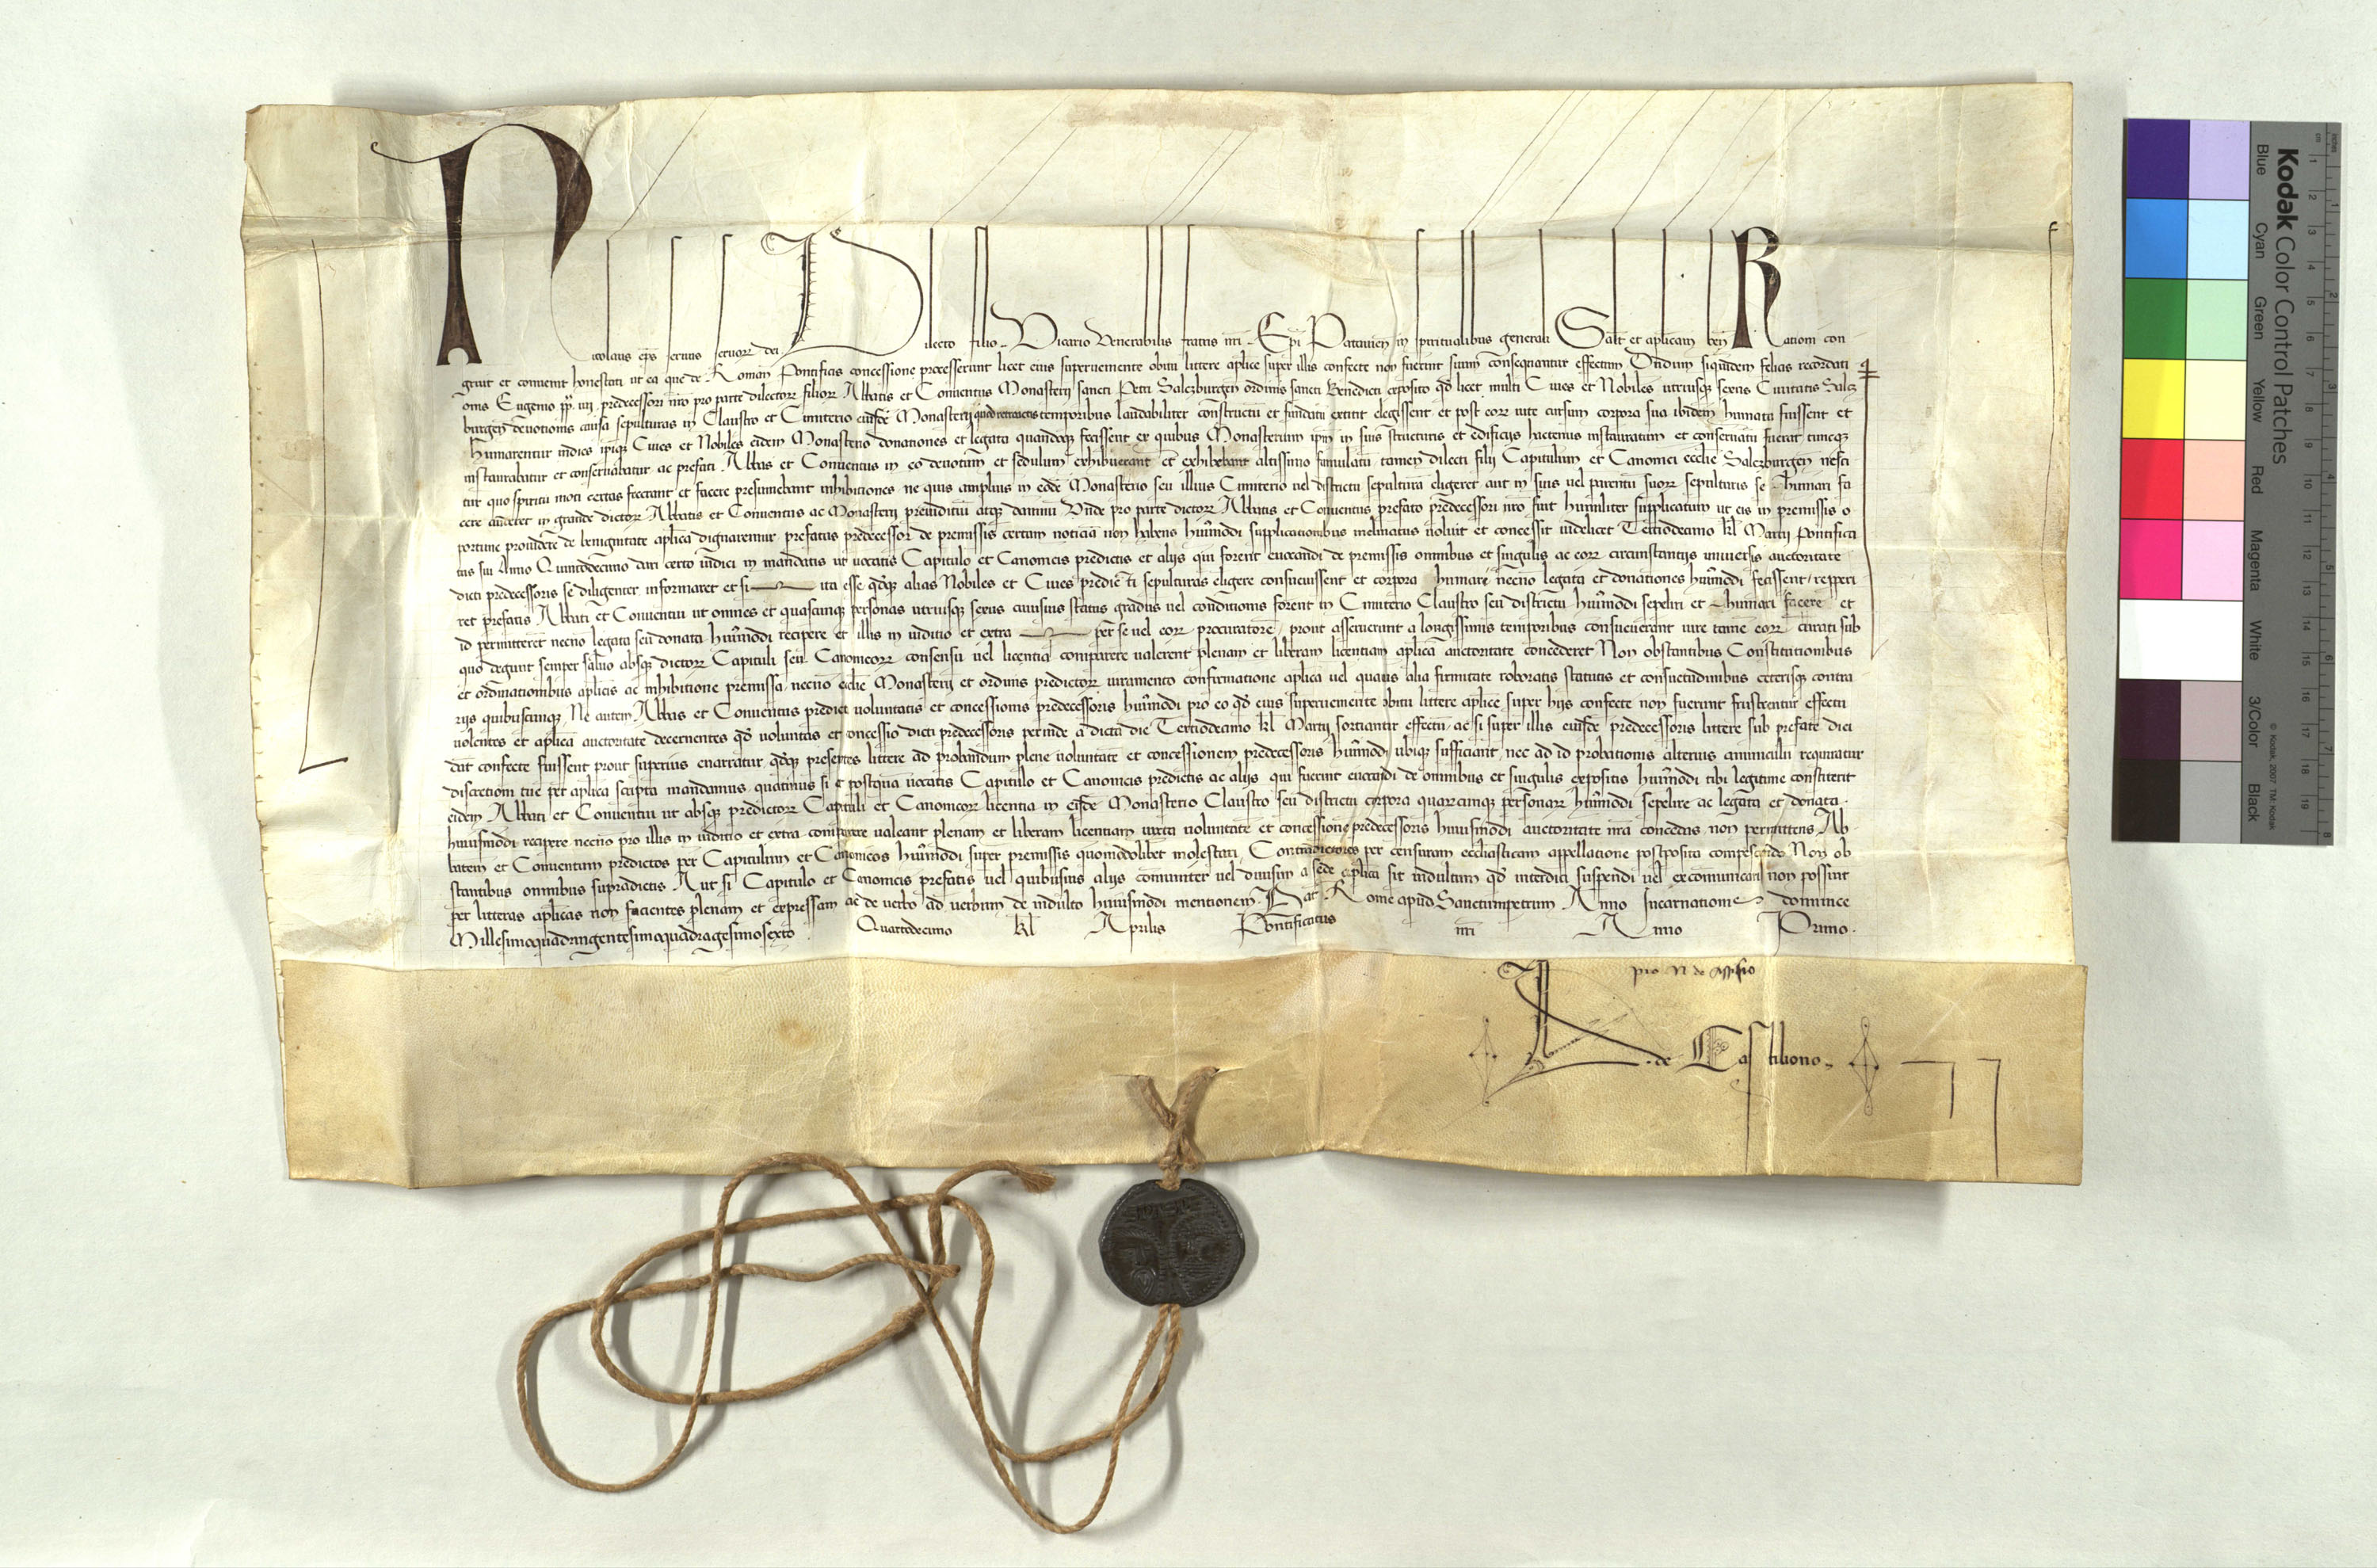 Nicolaus eps seruus seruor dei. Dilecto filio Vicario Venerabilis fratris nri Epi Patauien in spiritualibus generali Salt et aplicam ben Rationi con
gruit et conuenit honestati ut ea que de Romani Pontificis concessione processerunt licet eius superueniente obitu littere aplice super illis confecte non fuerint suum consequantur effectum Dudum siquidem felicis recordati
onis Eugenio pp iiij predecessori nro pro parte dilectorr filiorr Abbatis et Conuentus Monasterij sancti Petri Salczburgen ordinis sancti Benedicti exposito qd licet multi Ciues et Nobiles utriusqz sexus Ciuitatis Salcz
burgen deuotionis causa sepulturas in Claustro et Cimiterio eiusde Monasterij temporibus laudabiliter constructu et fundatu extitit elegissent et post eorr uite cursum corpora sua ibidem humata fuissent et
humarentur indies ipiqz Ciues et Nobiles eidem Monasterio donationes et legata quandoqz fecissent ex quibus Monasterium ipm in suis structuris et edificijs hactenus instauratum et conseruatu fuerat tuncqz
instaurabatur et conseruabatur ac prefati Abbas et Conuentus in eo deuotum et sedulum exhibuerant et exhibebant altissimo famulatu tamen dilecti filij Capitulum et Canonici ecclie Salezburgen nesci
tur quo spiritu moti certas fecerant et facere presumebant inhibitiones ne quis amplius in eode Monasterio seu illius Cimiterio uel districtu sepultura eligeret aut in suis uel parentu suorr sepulturis se humari fa
cere auderet in grande dictorr Abbatis et Conuentus ac Monasterij preiuditiu atqz damnu Vnde pro parte dictorr Abbatis et Conuentus prefato predecessori nro fuit humiliter supplicatum ut eis in premissis o
portune prouidere de benignitate aplica dignaremur prefatus predecessor de premissis certam noticia non habens huiusmodi supplicationibus inclinatus uoluit et concessit uidelicet Tertiodecimo kl Martij Pontifica
tus sui Anno Quintodecimo dari certo iudici in mandatis ut uocatis Capitulo et Canonicis predictis et alijs qui forent euocandi de premissis omnibus et singulis ac eorr circunstantijs uniuersis auctoritate
dicti predecessoris se diligenter informaret et si ita esse qdqz alias Nobiles et Ciues predicti sepulturas eligere consueuissent et corpora humari necno legata et donationes huiusmodi fecissent repperi
ret prefatis Abbati et Conuentui ut omnes et quascunqz personas utriusqz sexus cuiusuis status gradus uel conditionis forent in Cimiterio Claustro seu districtu huiusmodi sepeliri et humari facere et
id permitteret necno legata seu donata huiusmodi recipere et illis in iuditio et extra per se uel eorr procuratore prout asseruerunt a longissimis temporibus consueuerant iure tame eorr curati sub
quo degunt semper saluo absqz dictorr Capituli seu Canonicorr consensu uel licentia comparere ualerent plenam et liberam licentiam aplica auctoritate concederet Non obstantibus Constitutionibus
et ordinationibus aplicis ac inhibitione premissa necno ecclie Monasterij et ordinis predictorr iuramento confirmatione aplica uel quauis alia firmitate roboratis statutis et consuetudinibus ceterisqz contra
rijs quibuscunqz Ne autem Abbas et Conuentus predicti uoluntatis et concessionis predecessoris huiusmodi pro eo qd eius superueniente obitu littere aplice super hijs confecte non fuerunt frustrentur effectu
uolentes et aplica auctoritate decernentes qd uoluntas et concessio dicti predecessoris perinde a dicta die Tertiodecimo kl Martij sortiantur effectu ac si super illis eiusde predecessoris littere sub prefate diei
dat confecte fuissent prout superius enarratur qdqz presentes littere ad probandum plene uoluntate et concessionem predecessoris huiusmodi ubiqz sufficiant nec ad id probationis alterius amminiculu requiratur
discretioni tue per aplica scripta mandamus quatinus si et postqua uocatis Capitulo et Canonicis predictis ac alijs qui fuerint euocandi de omnibus et singulis expositis huiusmodi tibi legitime constiterit
eidem Abbati et Conuentui ut absqz predictorr Capituli et Canonicorr licentia in eisde Monasterio Claustro seu districtu corpora quarcunqz personarr huiusmodi sepelire ac legata et donata
huiusmodi recipere necno pro illis in iuditio et extra comparere ualeant plenam et liberam licentiam iuxta uoluntate et concessione predecessoris huiusmodi auctoritate nra concedas non permittens Ab
batem et Conuentum predictos per Capitulum et Canonicos huiusmodi super premissis quomodolibet molestari Contradictores per censuram ecclesiasticam appellatione postposita compescendo Non ob
stantibus omnibus supradictis Aut si Capitulo et Canonicis prefatis uel quibusuis alijs communiter uel diuisim a sede aplica sit indultum qd interdici suspendi uel excomunicari non possint
per litteras aplicas non facientes plenam et expressam ac de uerbo ad uerbum de indulto huiusmodi mentionem. Dat Rome apud Sanctumpetrum Anno Incarnationis dominice
Millesimoquadringentesimoquadragesimosexto Quartodecimo kl Aprilis Pontificatus nri Anno Primo.
pro N de Assisio
de Castiliono
Kodak Color Control Patches
Blue Cyan Green Yellow Red Magenta White 3/Color Black
© Kodak, 2007 TM: Kodak
inches 1 2 3 4 5 6 7 8
cm 1 2 3 4 5 6 7 8 9 10 11 12 13 14 15 16 17 18 19